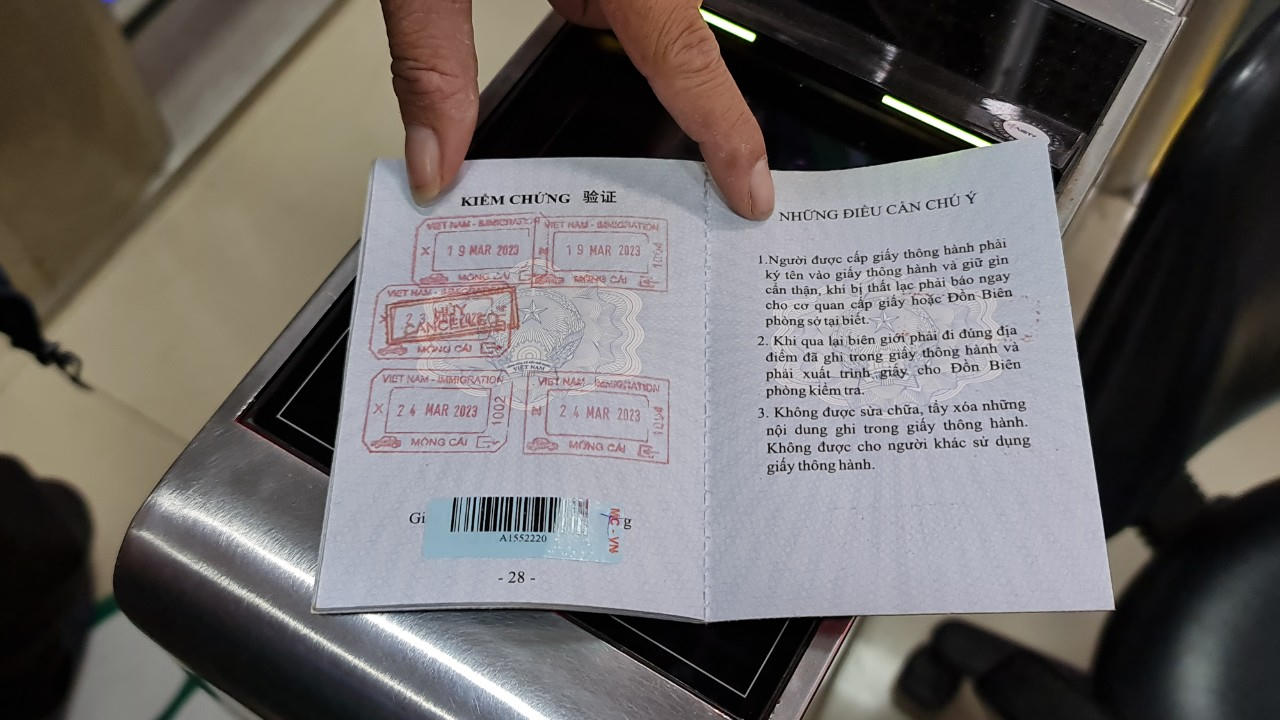 KIỂM CHỨNG 验证
VIET NAM - IMMIGRATION
X 19 MAR 2023
MÓNG CÁI
VIET NAM - IMMIGRATION
N 19 MAR 2023 1004
MÓNG CÁI
VIET NAM - IMMIGRATION
HỦY
CANCELLED
MÓNG CÁI
VIET NAM - IMMIGRATION
X 24 MAR 2023 1002
MÓNG CÁI
VIET NAM - IMMIGRATION
N 24 MAR 2023 1004
MÓNG CÁI
VIỆT NAM
Gi
A1552220
MC - VN
- 28 -
NHỮNG ĐIỀU CẦN CHÚ Ý
1.Người được cấp giấy thông hành phải
ký tên vào giấy thông hành và giữ gìn
cẩn thận, khi bị thất lạc phải báo ngay
cho cơ quan cấp giấy hoặc Đồn Biên
phòng sở tại biết.
2. Khi qua lại biên giới phải đi đúng địa
điểm đã ghi trong giấy thông hành và
phải xuất trình giấy cho Đồn Biên
phòng kiểm tra.
3. Không được sửa chữa, tẩy xóa những
nội dung ghi trong giấy thông hành.
Không được cho người khác sử dụng
giấy thông hành.